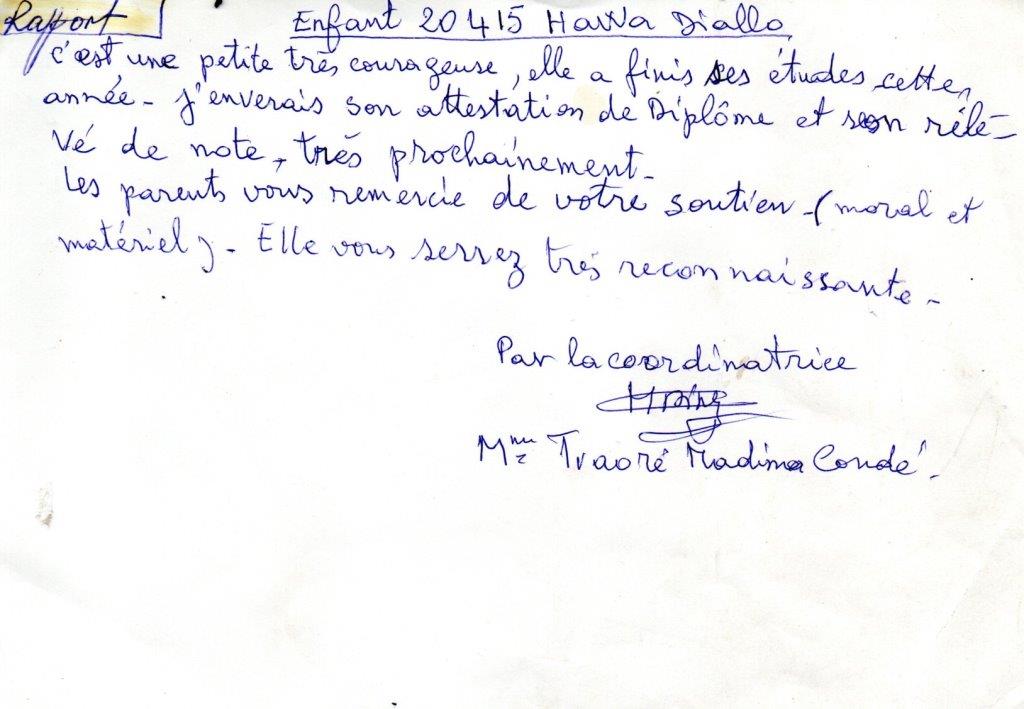 Rapport Enfant 20 415 Hawa Diallo
c'est une petite très courageuse, elle a finis ses études cette
année - j'enverais son attestation de Diplôme et son rélé-
vé de note, très prochainement -
Les parents vous remercie de votre soutien - (moral et
matériel) - Elle vous serrez très reconnaissante -
Par la coordinatrice
Mme Traoré Madina Condé.